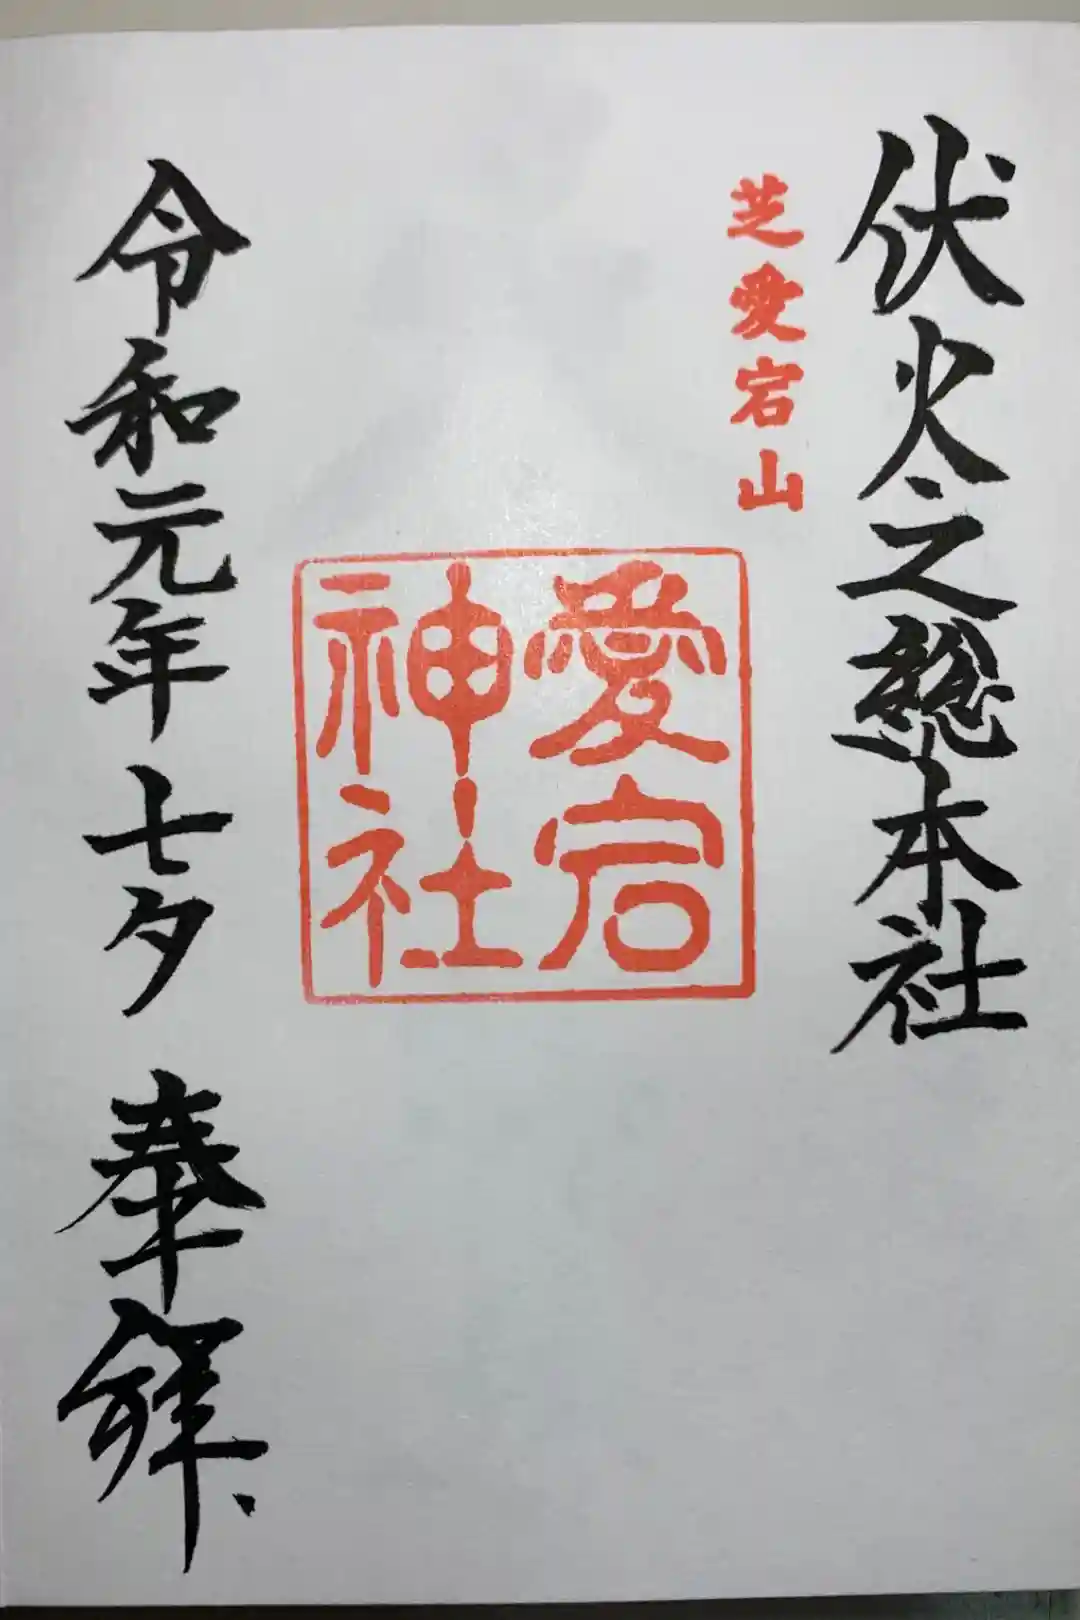 伏火之總本社
芝愛宕山
愛宕
神社
令和元年 七夕 奉拜